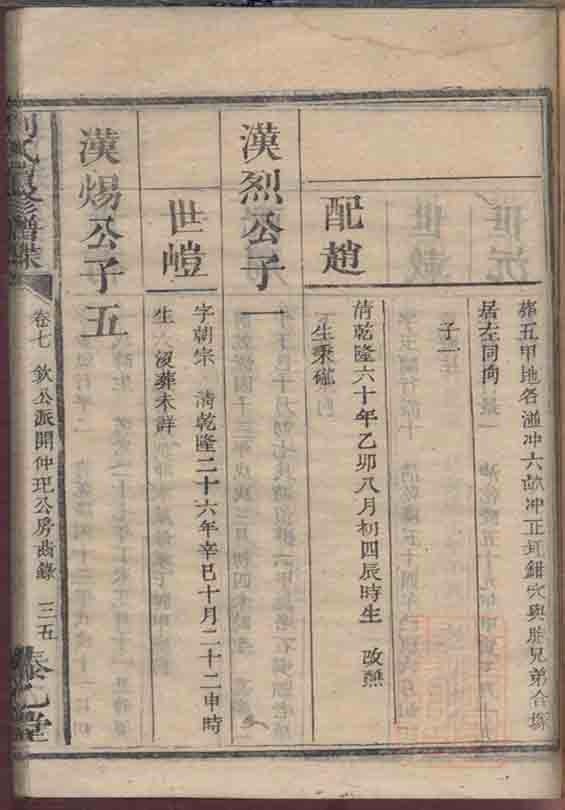 葬五甲地名湴冲六畝冲正坑鉗穴與胞兄弟合塚
居左同向
子一
配趙
清乾隆六十年乙卯八月初四辰時生 改燕
生秉礠
漢烈公子一
世嵦
字朝宗 清乾隆二十六年辛巳十月二十二申時
生 沒葬未詳
漢煬公子五
卷七 欽公派開仲玘公房齒錄 三五